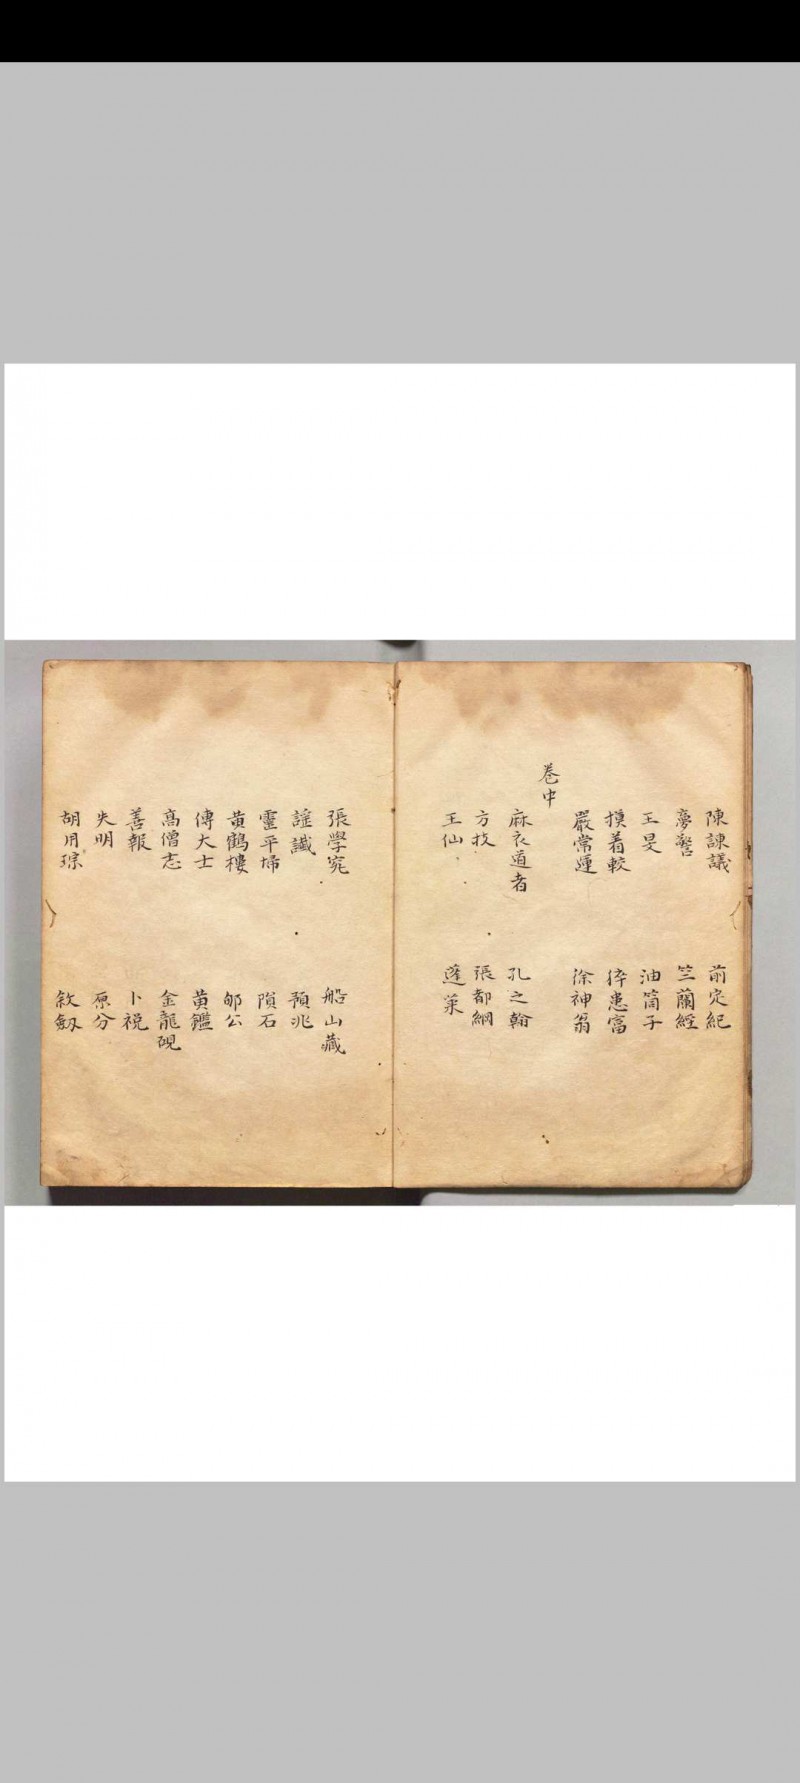 陳諫議　前定紀
夢警　竺蘭經
王旻　油筒子
摸着較　猝患富
嚴常運　徐神翁
卷中
麻衣道者　孔之翰
方技　張都綱
王仙　蓬萊
張學究　船山藏
謡讖　預兆
靈平埽　隕石
黄鶴樓　邹公
傅大士　黄鑑
高僧志　金龍硯
善報　卜祝
失明　原分
胡用琮　敘劔